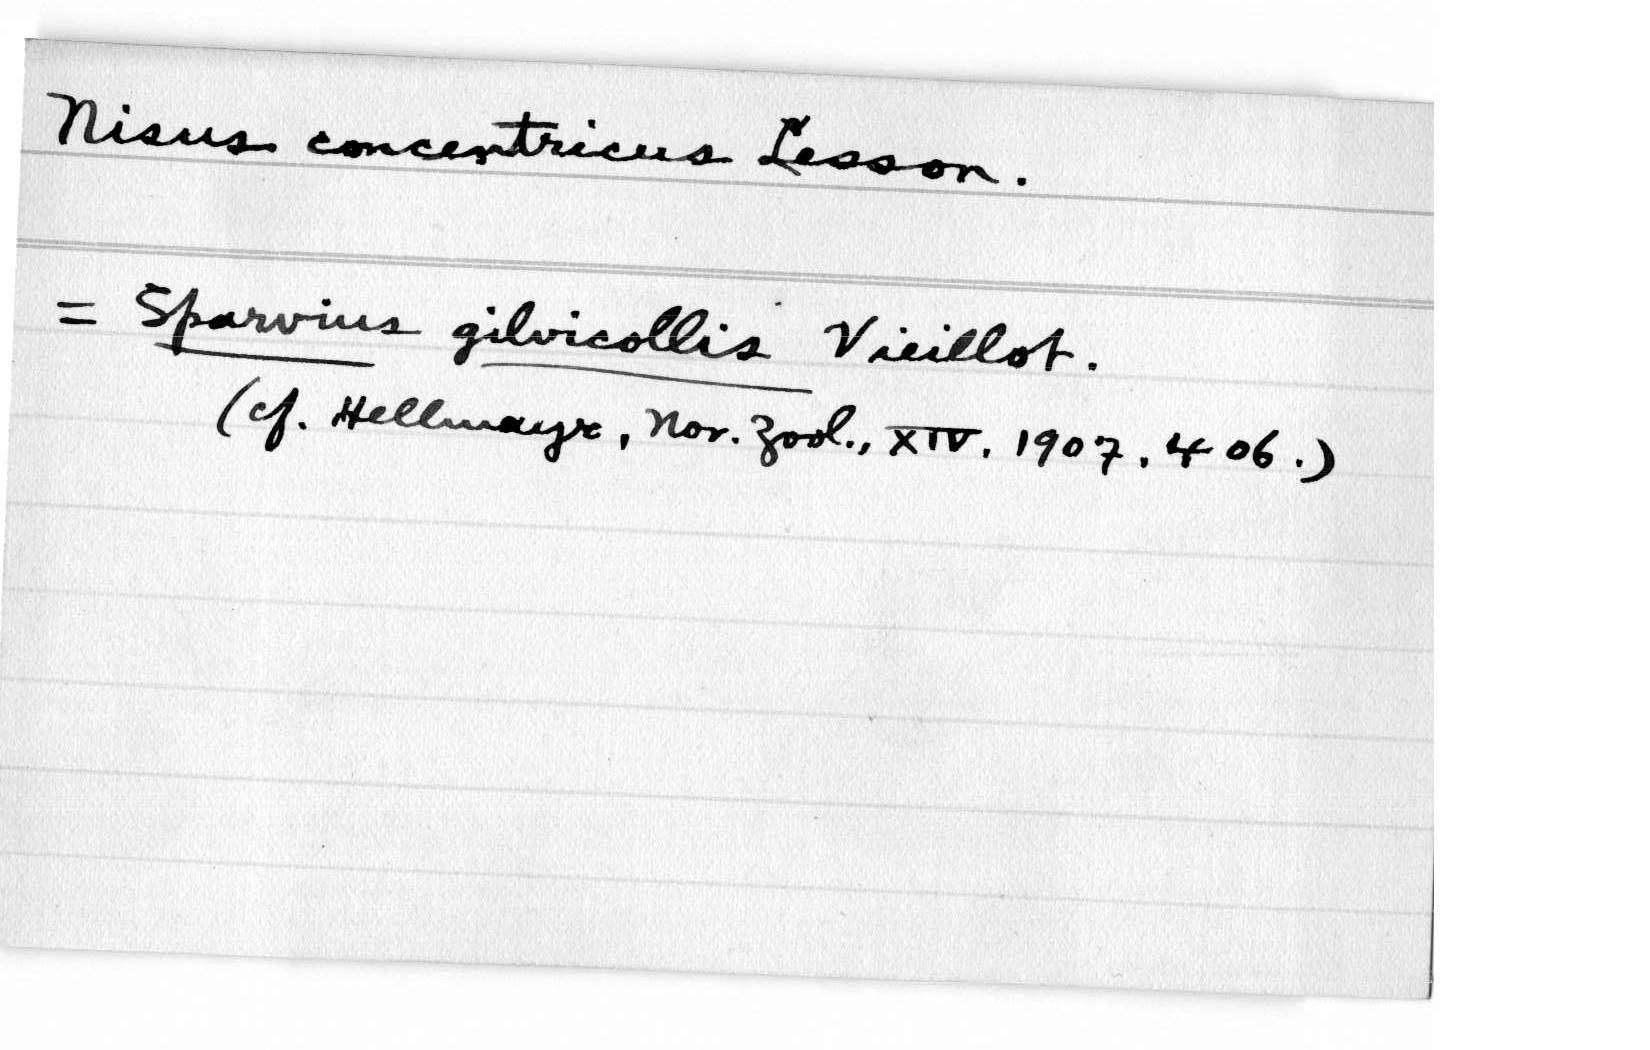 Nisus concentricus Lesson.
= Sparvius gilvicollis Vieillot.
(cf. Hellmayr, Nov. Zool., XIV. 1907. 406.)